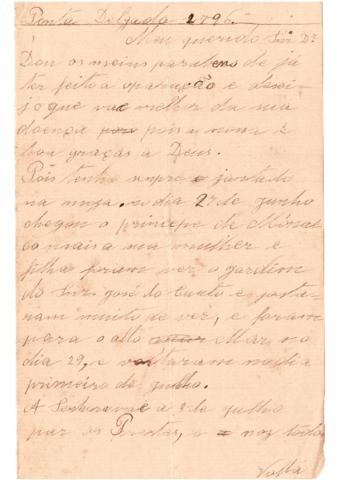 Ponta Delgada 1896.
Meu querido Snr Dr
Dou os meus parabens de já
ter feito a oparação e dese-
jo que vae melhor da sua
doença pois a nossa é
boa graças a Deus.
Pois tenho sempre jantado
na meza. no dia 27 de junho
chegou o principe de Mónac
co mais a sua mulher e
filha foram ver o gardim
do Snr. José do Canto e gosta-
ram muito de ver, e foram
para o alto Mar no
dia 29, e voltaram no dia
primeiro de julho.
A Senhora vae a 8 de julho
par as Prestes, e nos todos
Volta